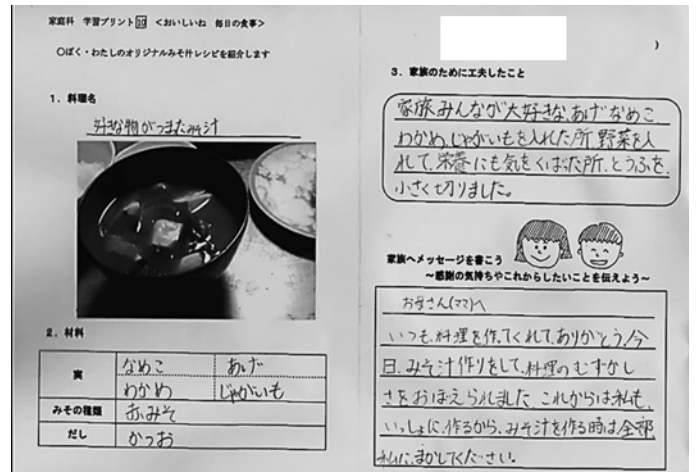 家庭科 学習プリント⑩ <おいしいね 毎日の食事>
〇ぼく・わたしのオリジナルみそ汁レシピを紹介します
1.料理名
好きな物がつまたみそ汁
2.材料
実 なめこ あげ
わかめ じゃがいも
みその種類 赤みそ
だし かつお
)
3.家族のために工夫したこと
家族みんなが大好きな、あげ なめこ
わかめ、じゃがいもを入れた所、野菜を入
れて、栄養にも気をくばった所、とうふを、
小さく切りました。
家族へメッセージを書こう
~感謝の気持ちやこれからしたいことを伝えよう~
お母さん(ママ)へ
いつも、料理を作ってくれて、ありがとう。今
日、みそ汁作りをして、料理のむずかし
さをおぼえられました。これからは私も、
いっしょに、作るから、みそ汁を作る時は、全部
私に、まかしてください。